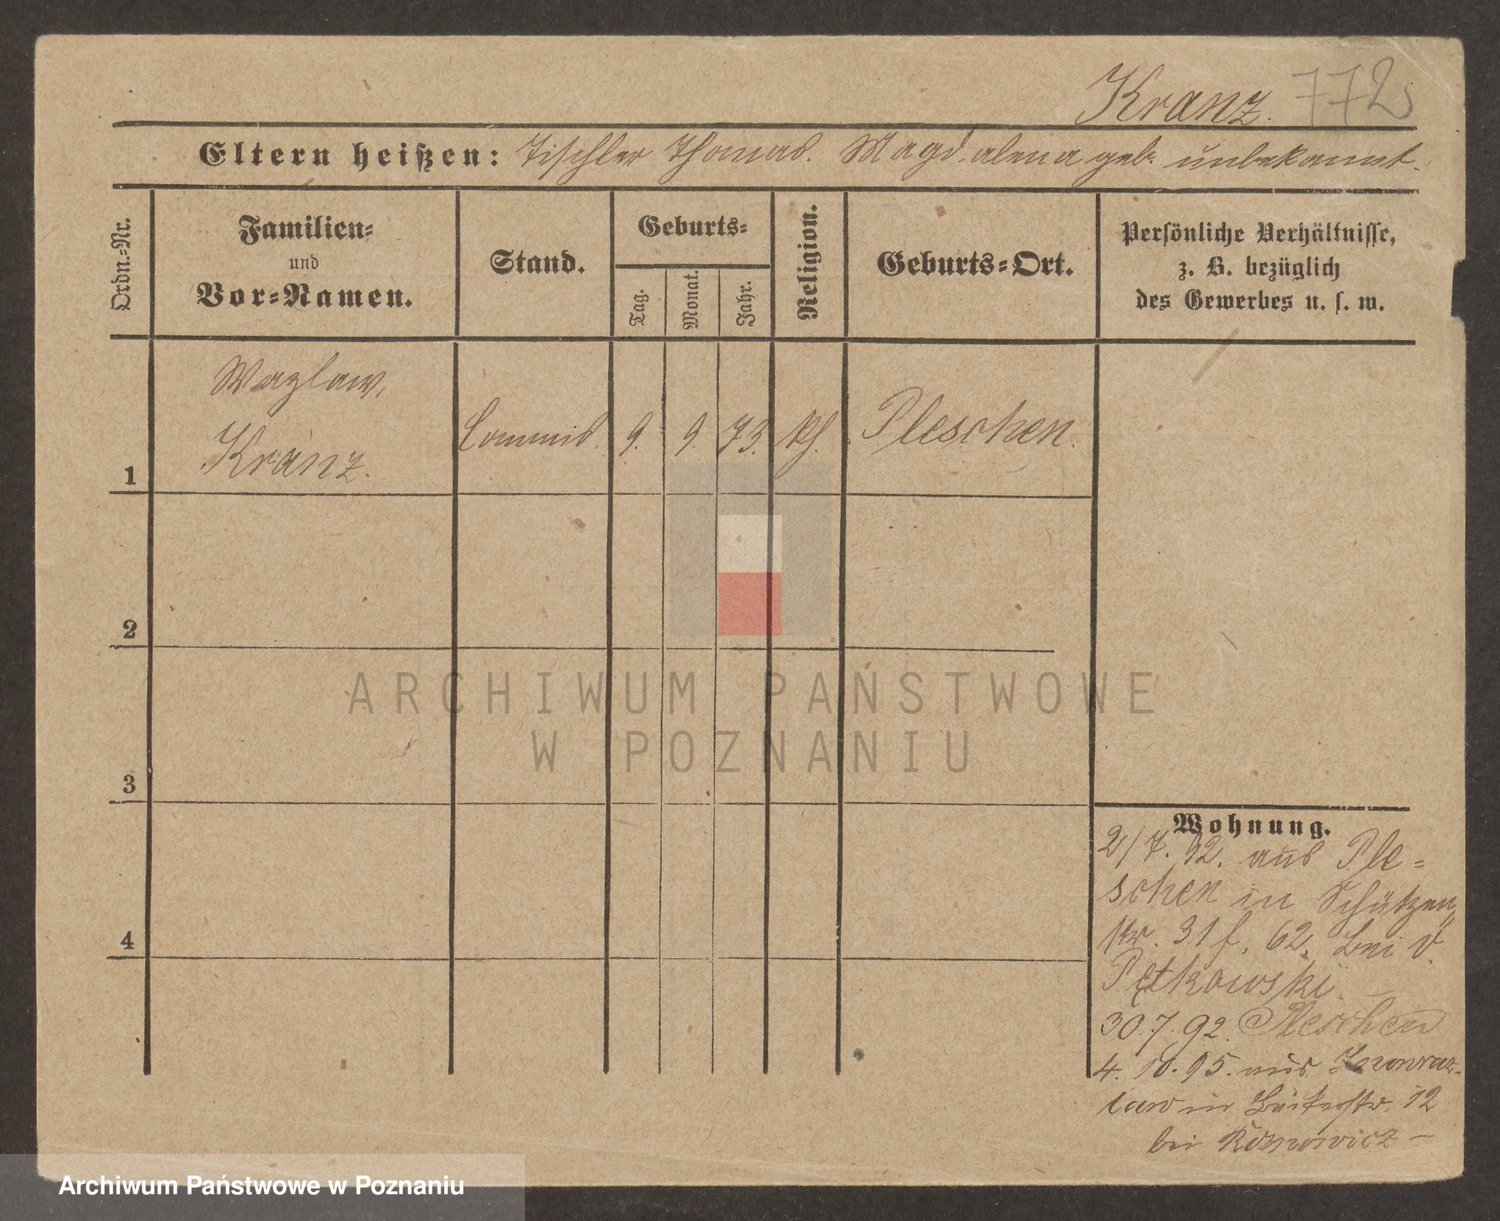 Kranz. 772
Eltern heißen: Tischler Thomas. Magdalena geb. unbekannt.
Ordn.-Nr.
Familien-
und
Vor-Namen.
Stand.
Geburts-
Tag.
Monat.
Jahr.
Religion.
Geburts-Ort.
Persönliche Verhältnisse,
z. B. bezüglich
des Gewerbes u. s. w.
Wazlaw,
1 Kranz. Commis. 9. 9. 73. kth. Pleschen.
2
3
4
ARCHIWUM PAŃSTWOWE
W POZNANIU
Wohnung.
2/7. 92. aus Ple-
schen in Schützen-
str. 31 f. 62. bei v.
Petkowski.
30.7.92. Pleschen
4. 10. 95. aus Inowraz-
law in Bäckerstr. 12
bei
Archiwum Państwowe w Poznaniu